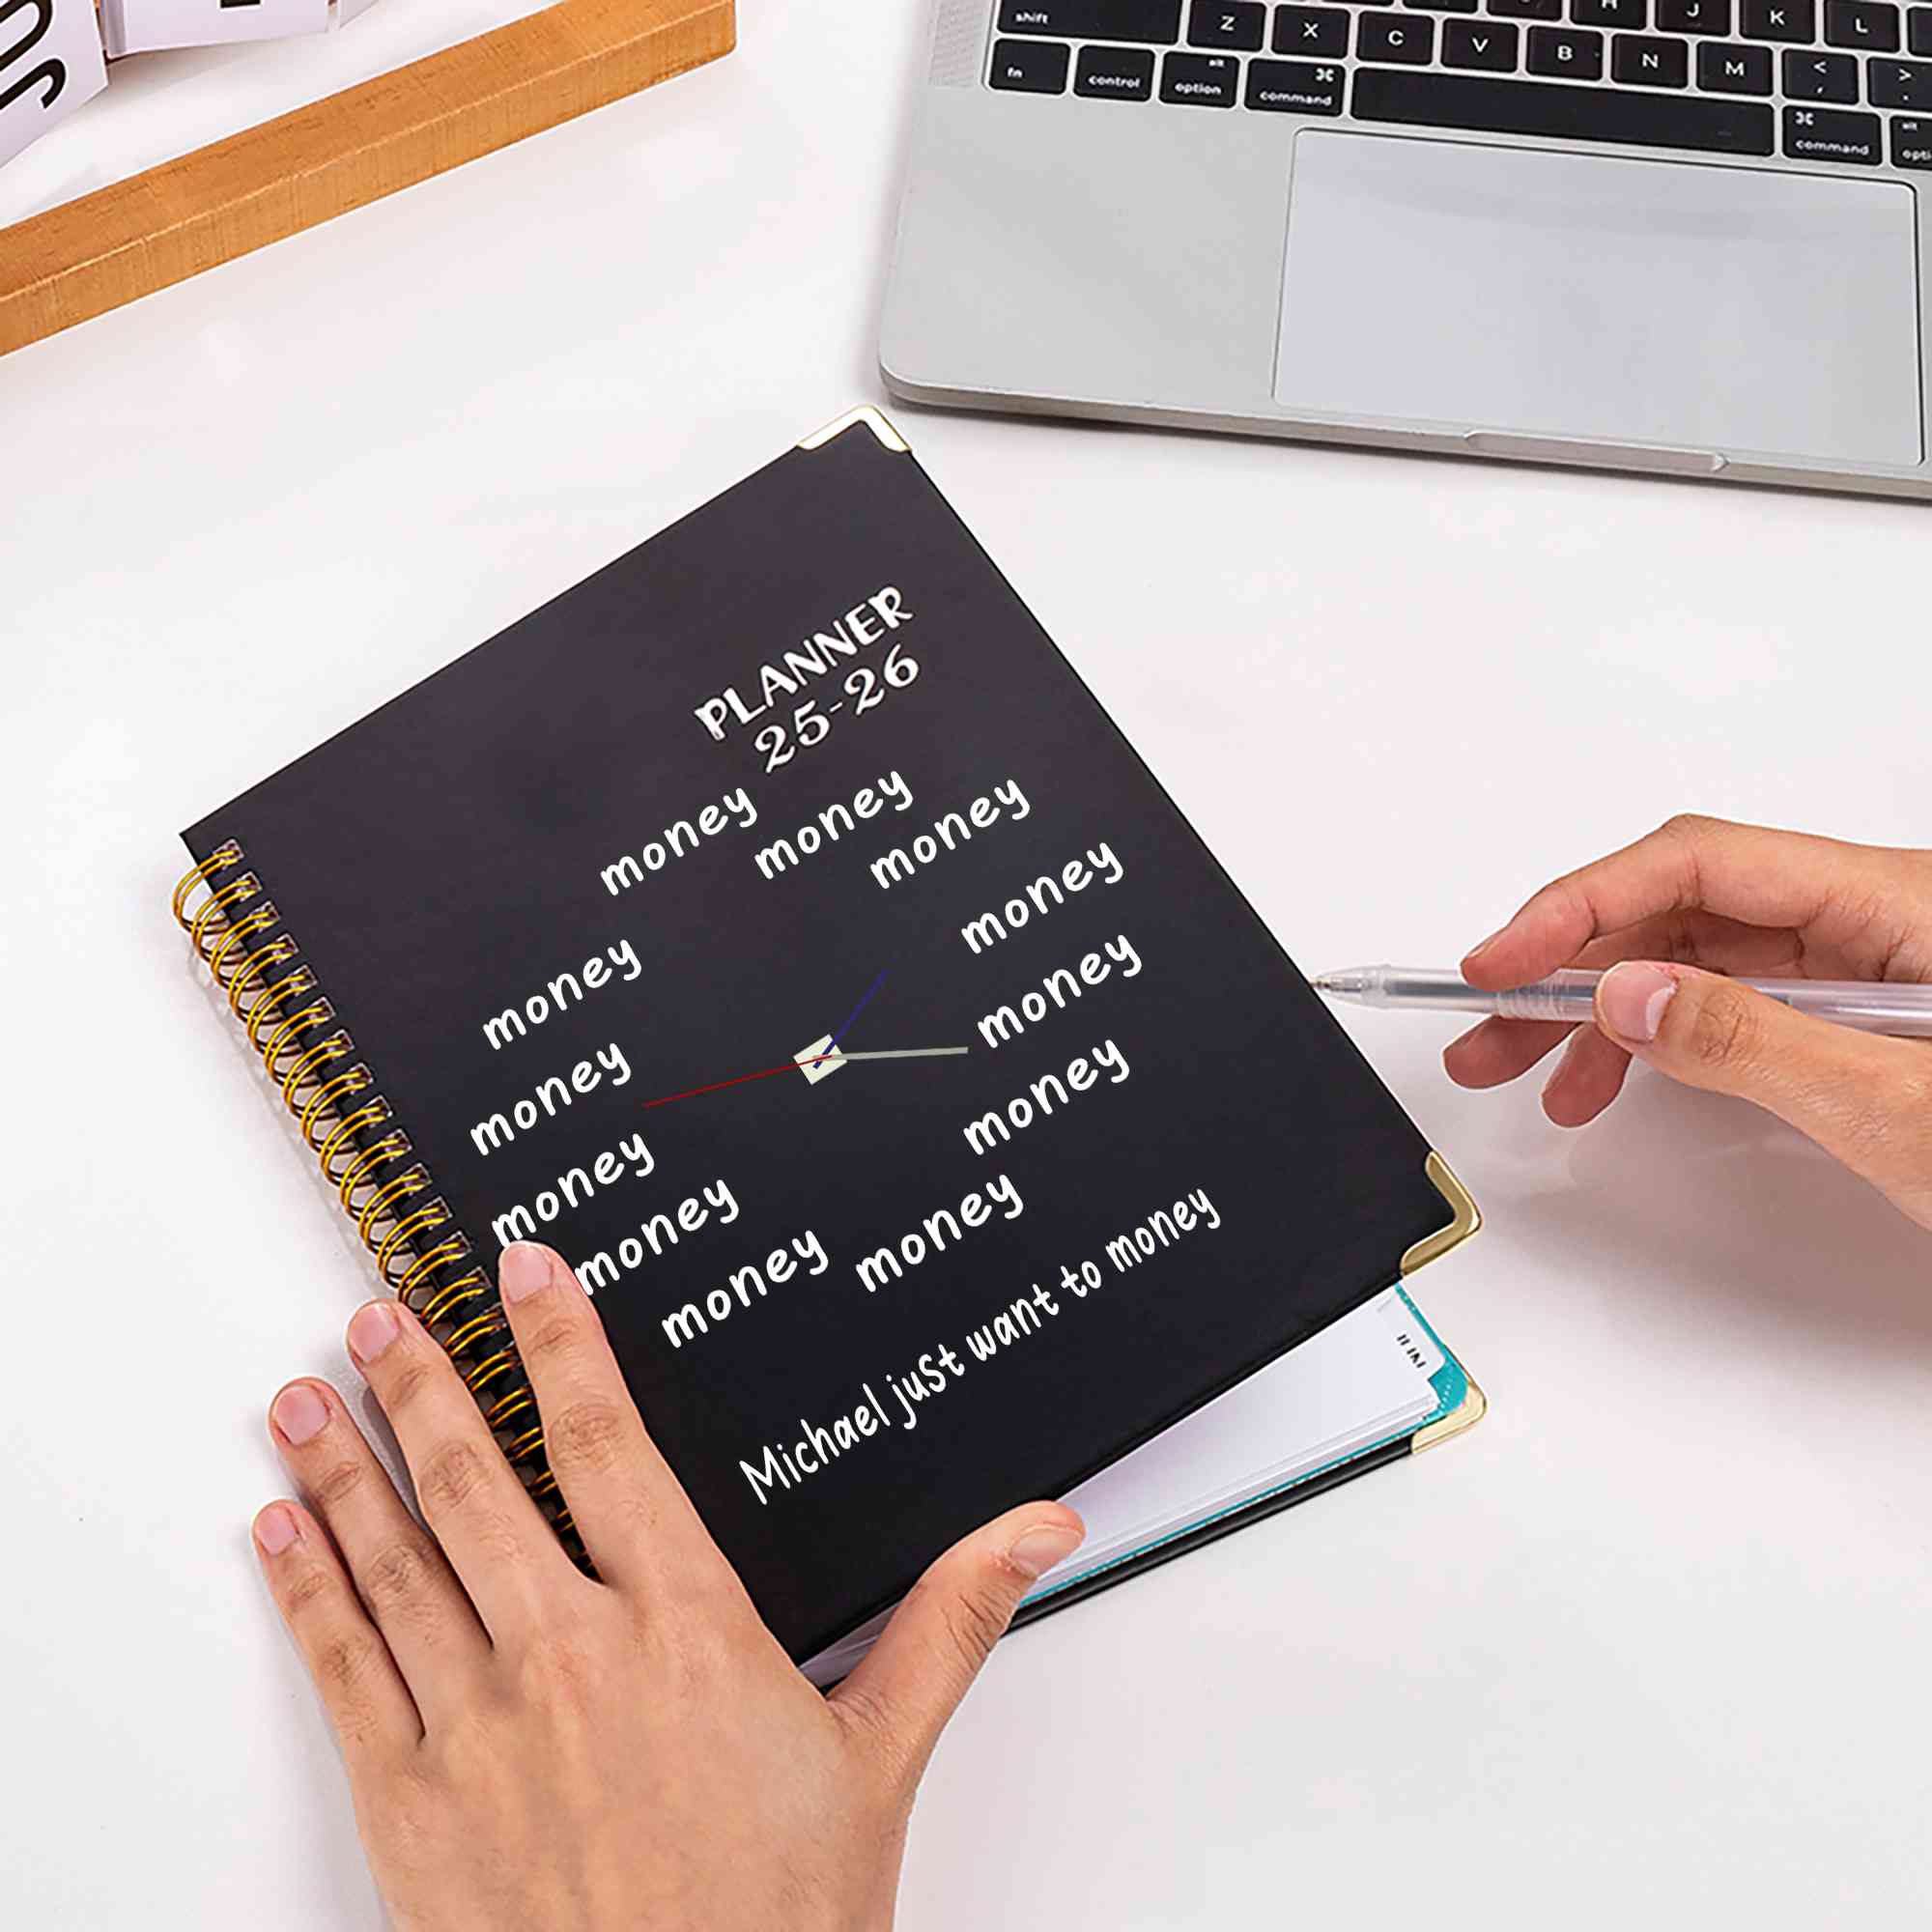 H J K L
shift Z X C V B N M < >
, .
fn control alt option ⌘ command ⌘ command alt
PLANNER
25-26
money
money
money
money
money
money
money
money
money
money
money
money
Michael just want to money